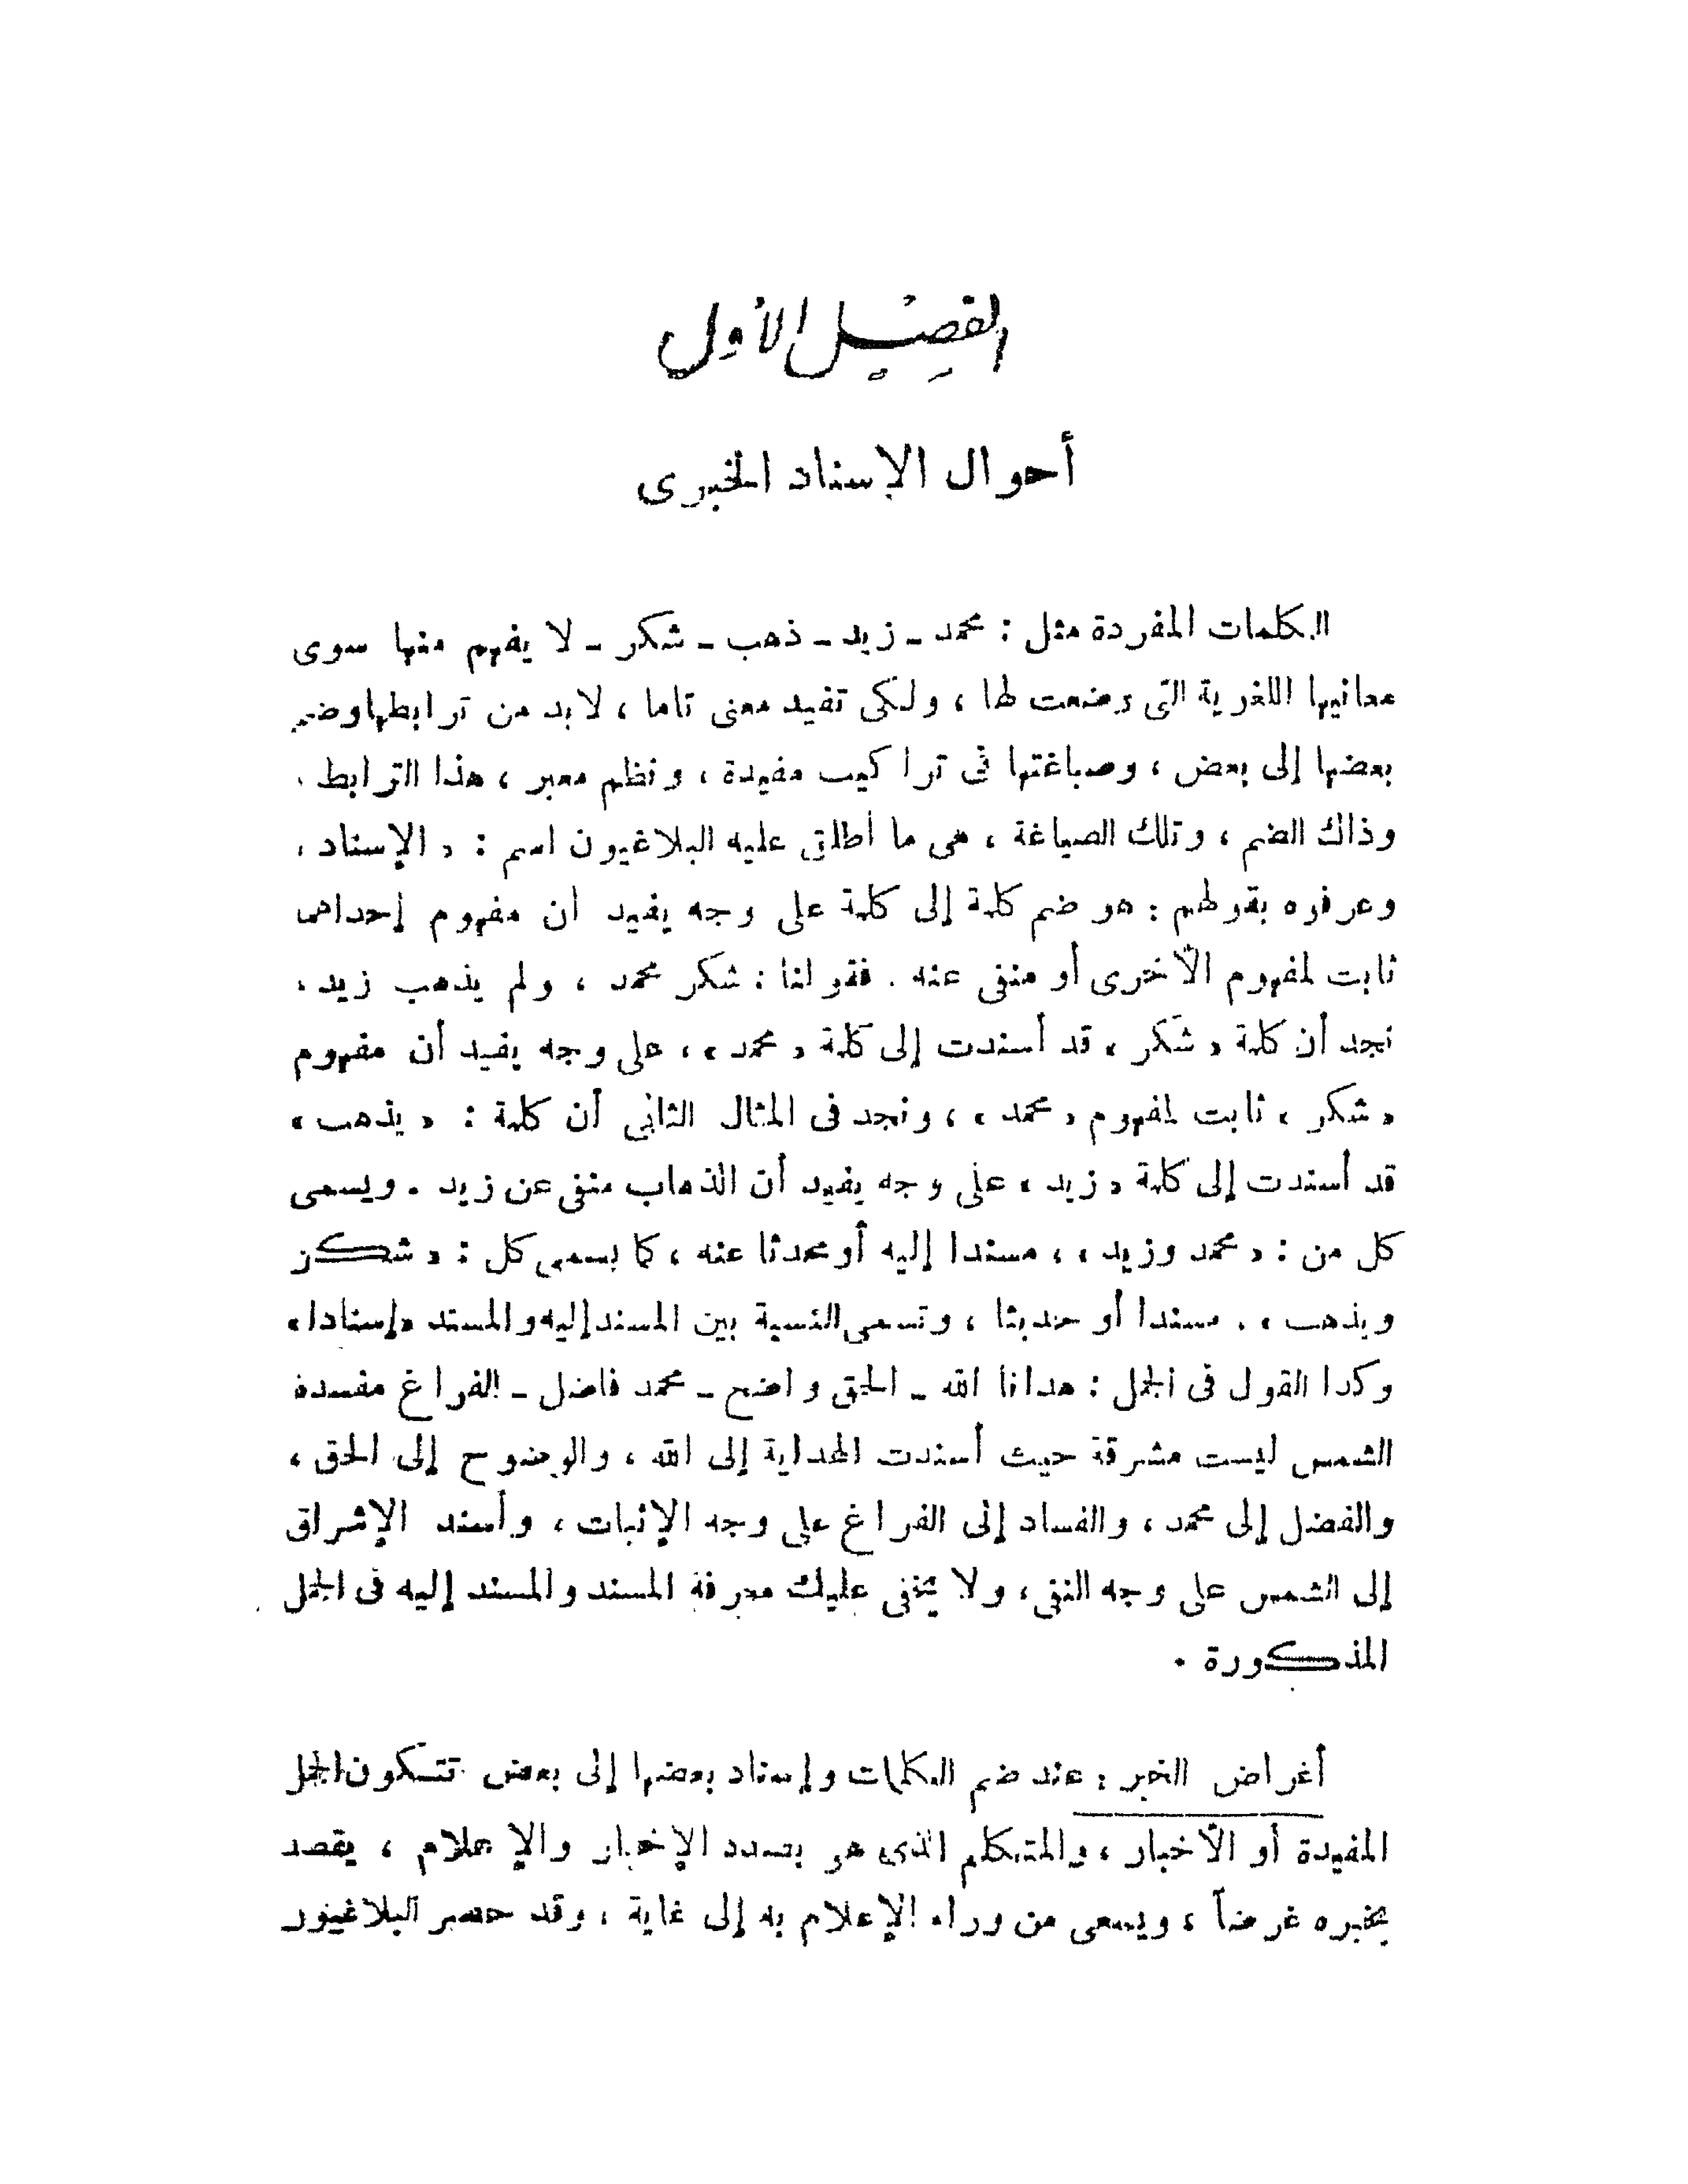 الفصل الأول
أحوال الإسناد الخبرى
الكلمات المفردة مثل : محمد ـ زيد ـ ذهب ـ شكر ـ لا يفهم منها سوى
معانيها اللغوية التى وضعت لها ، ولكى تفيد معنى تاما ، لابد من ترابطها وضم
بعضها إلى بعض ، وصياغتها فى تراكيب مفيدة ، ونظم معبر ، هذا الترابط .
وذاك الضم ، وتلك الصياغة ، هى ما أطلق عليه البلاغيون اسم : « الإسناد ،
وعرفوه بقولهم : هو ضم كلمة إلى كلمة على وجه يفيد أن مفهوم إحداهما
ثابت لمفهوم الأخرى أو منفى عنه . فقولنا : شكر محمد ، ولم يذهب زيد ،
نجد أن كلمة « شكر » قد أسندت إلى كلمة « محمد » ، على وجه يفيد أن مفهوم
« شكر » ثابت لمفهوم « محمد » ، ونجد فى المثال الثانى أن كلمة : « يذهب »
قد أسندت إلى كلمة « زيد » على وجه يفيد أن الذهاب منفى عن زيد . ويسمى
كل من : « محمد وزيد » ، مسندا إليه أو محدثا عنه ، كما يسمى كل : « شكر
ويذهب » . مسندا أو حديثا ، وتسمى النسبة بين المسند إليه والمسند «إسنادا»
وكذا القول فى الجمل : هدانا الله ـ الحق واضح ـ محمد فاضل ـ الفراغ مفسدة
الشمس ليست مشرقة حيث أسندت الهداية إلى الله ، والوضوح إلى الحق ،
والفضل إلى محمد ، والفساد إلى الفراغ على وجه الإثبات ، وأسند الإشراق
إلى الشمس على وجه النفى ، ولا يخفى عليك معرفة المسند والمسند إليه فى الجمل
المذكورة .
أغراض الخبر : عند ضم الكلمات وإسناد بعضها إلى بعض تتكون الجمل
المفيدة أو الأخبار ، والمتكلم الذى هو بصدد الإخبار والإعلام ، يقصد
بخبره غرضاً ، ويسعى من وراء الإعلام به إلى غاية ، وقد حصر البلاغيون